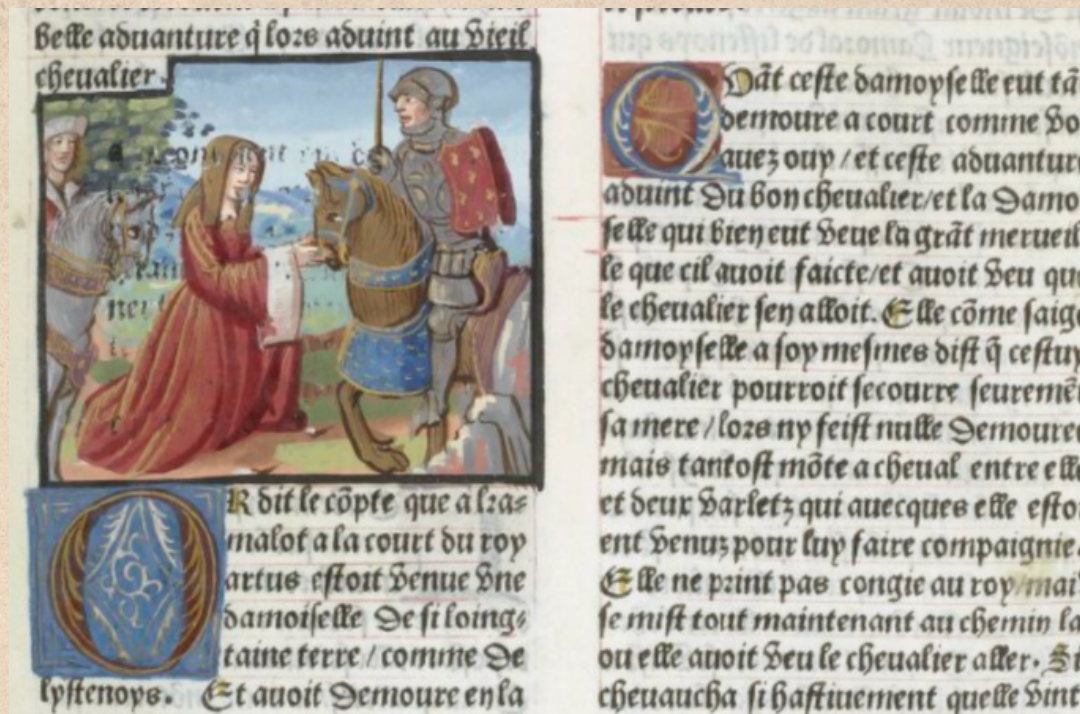 belle aduanture q̃ lors aduint au vieil
cheualier.
OR dit le cõpte que a kra-
malot a la court du roy
artus estoit venue vne
damoiselle de si loing-
taine terre / comme de
lystenoys. Et auoit demoure en la
Quãt ceste damoyselle eut tã
demoure a court comme vo
auez ouy / et ceste aduanture
aduint du bon cheualier / et la damo
selle qui bien eut veue la grãt merueil
le que cil auoit faicte / et auoit veu que
le cheualier sen alloit. Elle cõme saige
damoyselle a soy mesmes dist q̃ cestuy
cheualier pourroit secourre seuremẽ
sa mere / lors ny feist nulle demouree
mais tantost mõte a cheual entre elle
et deux varletz qui auecques elle esto
ent venuz pour luy faire compaignie.
Elle ne print pas congie au roy / mai
se mist tout maintenant au chemin la
ou elle auoit veu le cheualier aller. Si
cheuaucha si hastiuement quelle vint